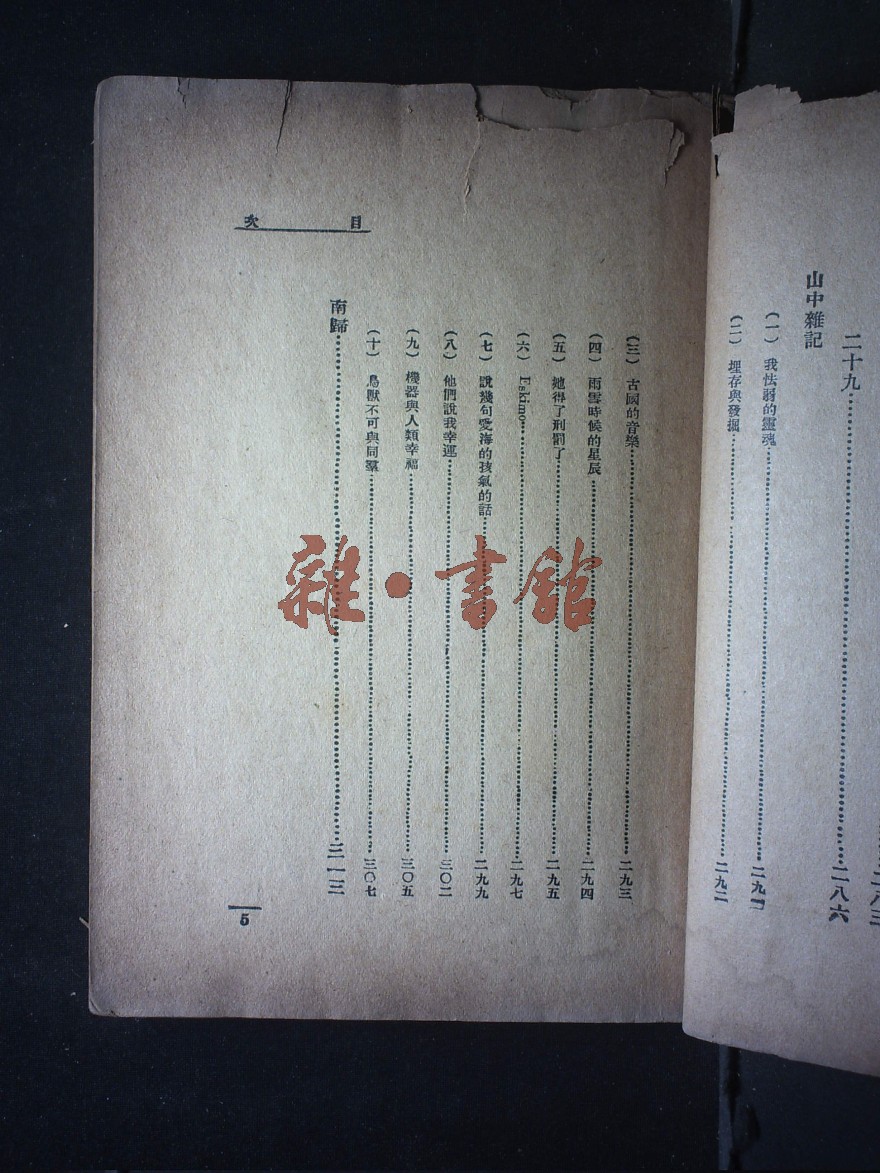 二八三
二十九……二八六
山中雜記
（一） 我怯弱的靈魂……二九一
（二） 埋存與發掘……二九二
目次
（三） 古國的音樂……二九三
（四） 雨雪時候的星辰……二九四
（五） 她得了刑罰了……二九五
（六） Eskimo……二九七
（七） 說幾句愛海的孩氣的話……二九九
（八） 他們說我幸運……三〇二
（九） 機器與人類幸福……三〇五
（十） 鳥獸不可與同羣……三〇七
南歸……三一三
5
雜・書館